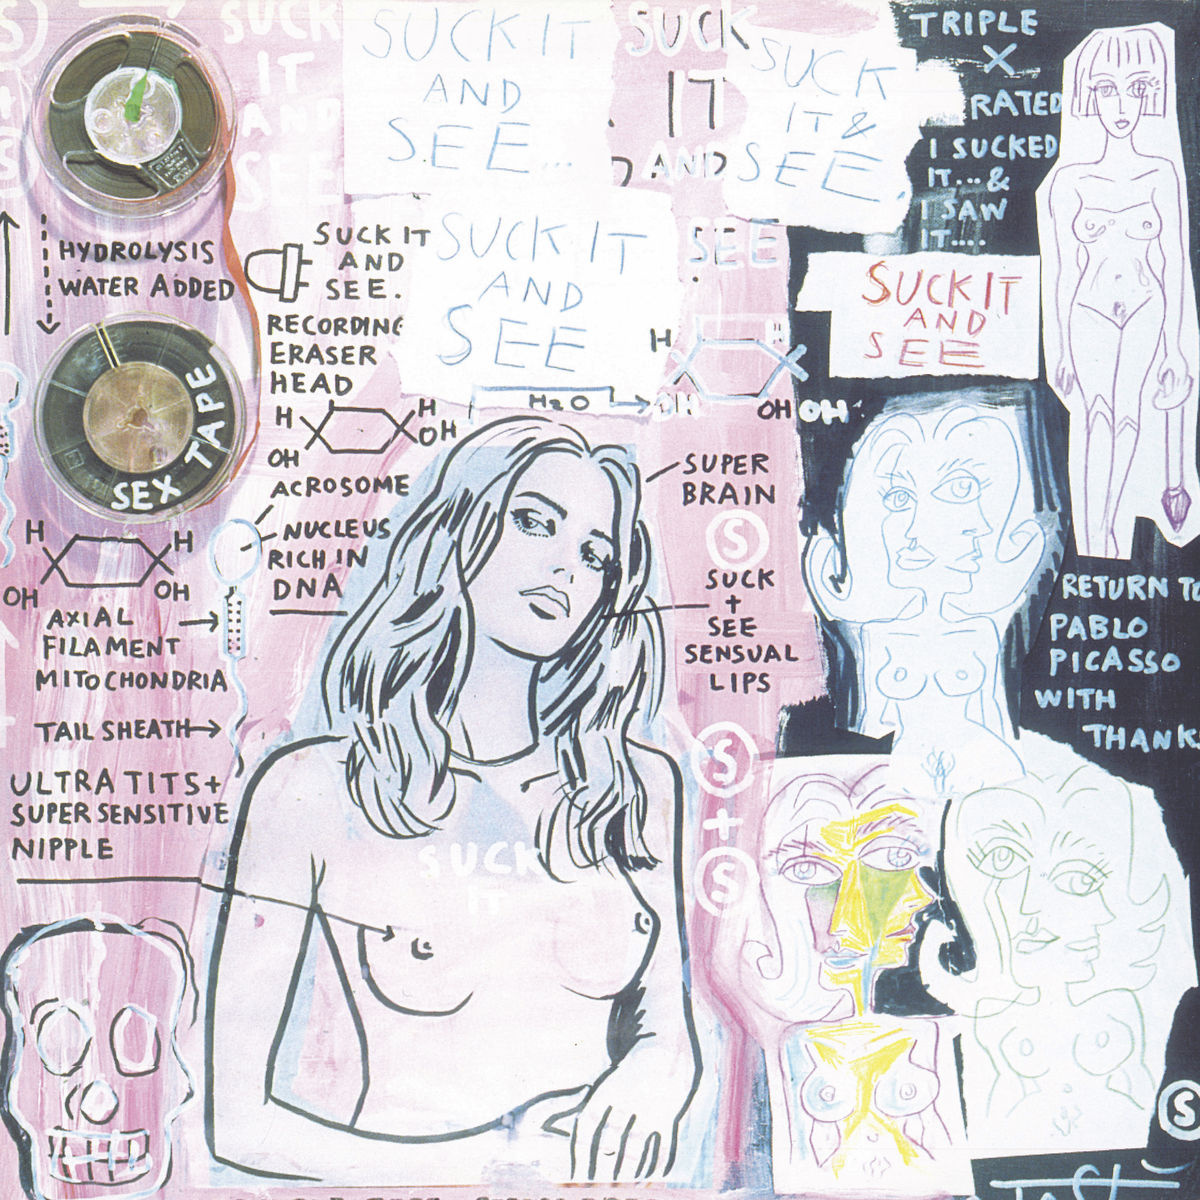 SUCK
IT
AND
SEE
SUCK IT
AND
SEE...
SUCK
IT
AND
SEE
SUCK
IT &
SEE.
TRIPLE
X
RATED
I SUCKED
IT...&
I SAW
IT....
HYDROLYSIS
WATER ADDED
SUCK IT
AND
SEE.
SUCK IT
AND
SEE
SUCK IT
AND
SEE
RECORDING
ERASER
HEAD
SEX TAPE
H
H
OH
OH
H2O
H
H
OH
OH
OH
ACROSOME
NUCLEUS
RICH IN
DNA
SUPER
BRAIN
S
SUCK
+
SEE
SENSUAL
LIPS
H
H
OH
OH
AXIAL
FILAMENT
MITOCHONDRIA
TAIL SHEATH
ULTRA TITS+
SUPER SENSITIVE
NIPPLE
RETURN TO
PABLO
PICASSO
WITH
THANK
S
+
S
SUCK
IT
S